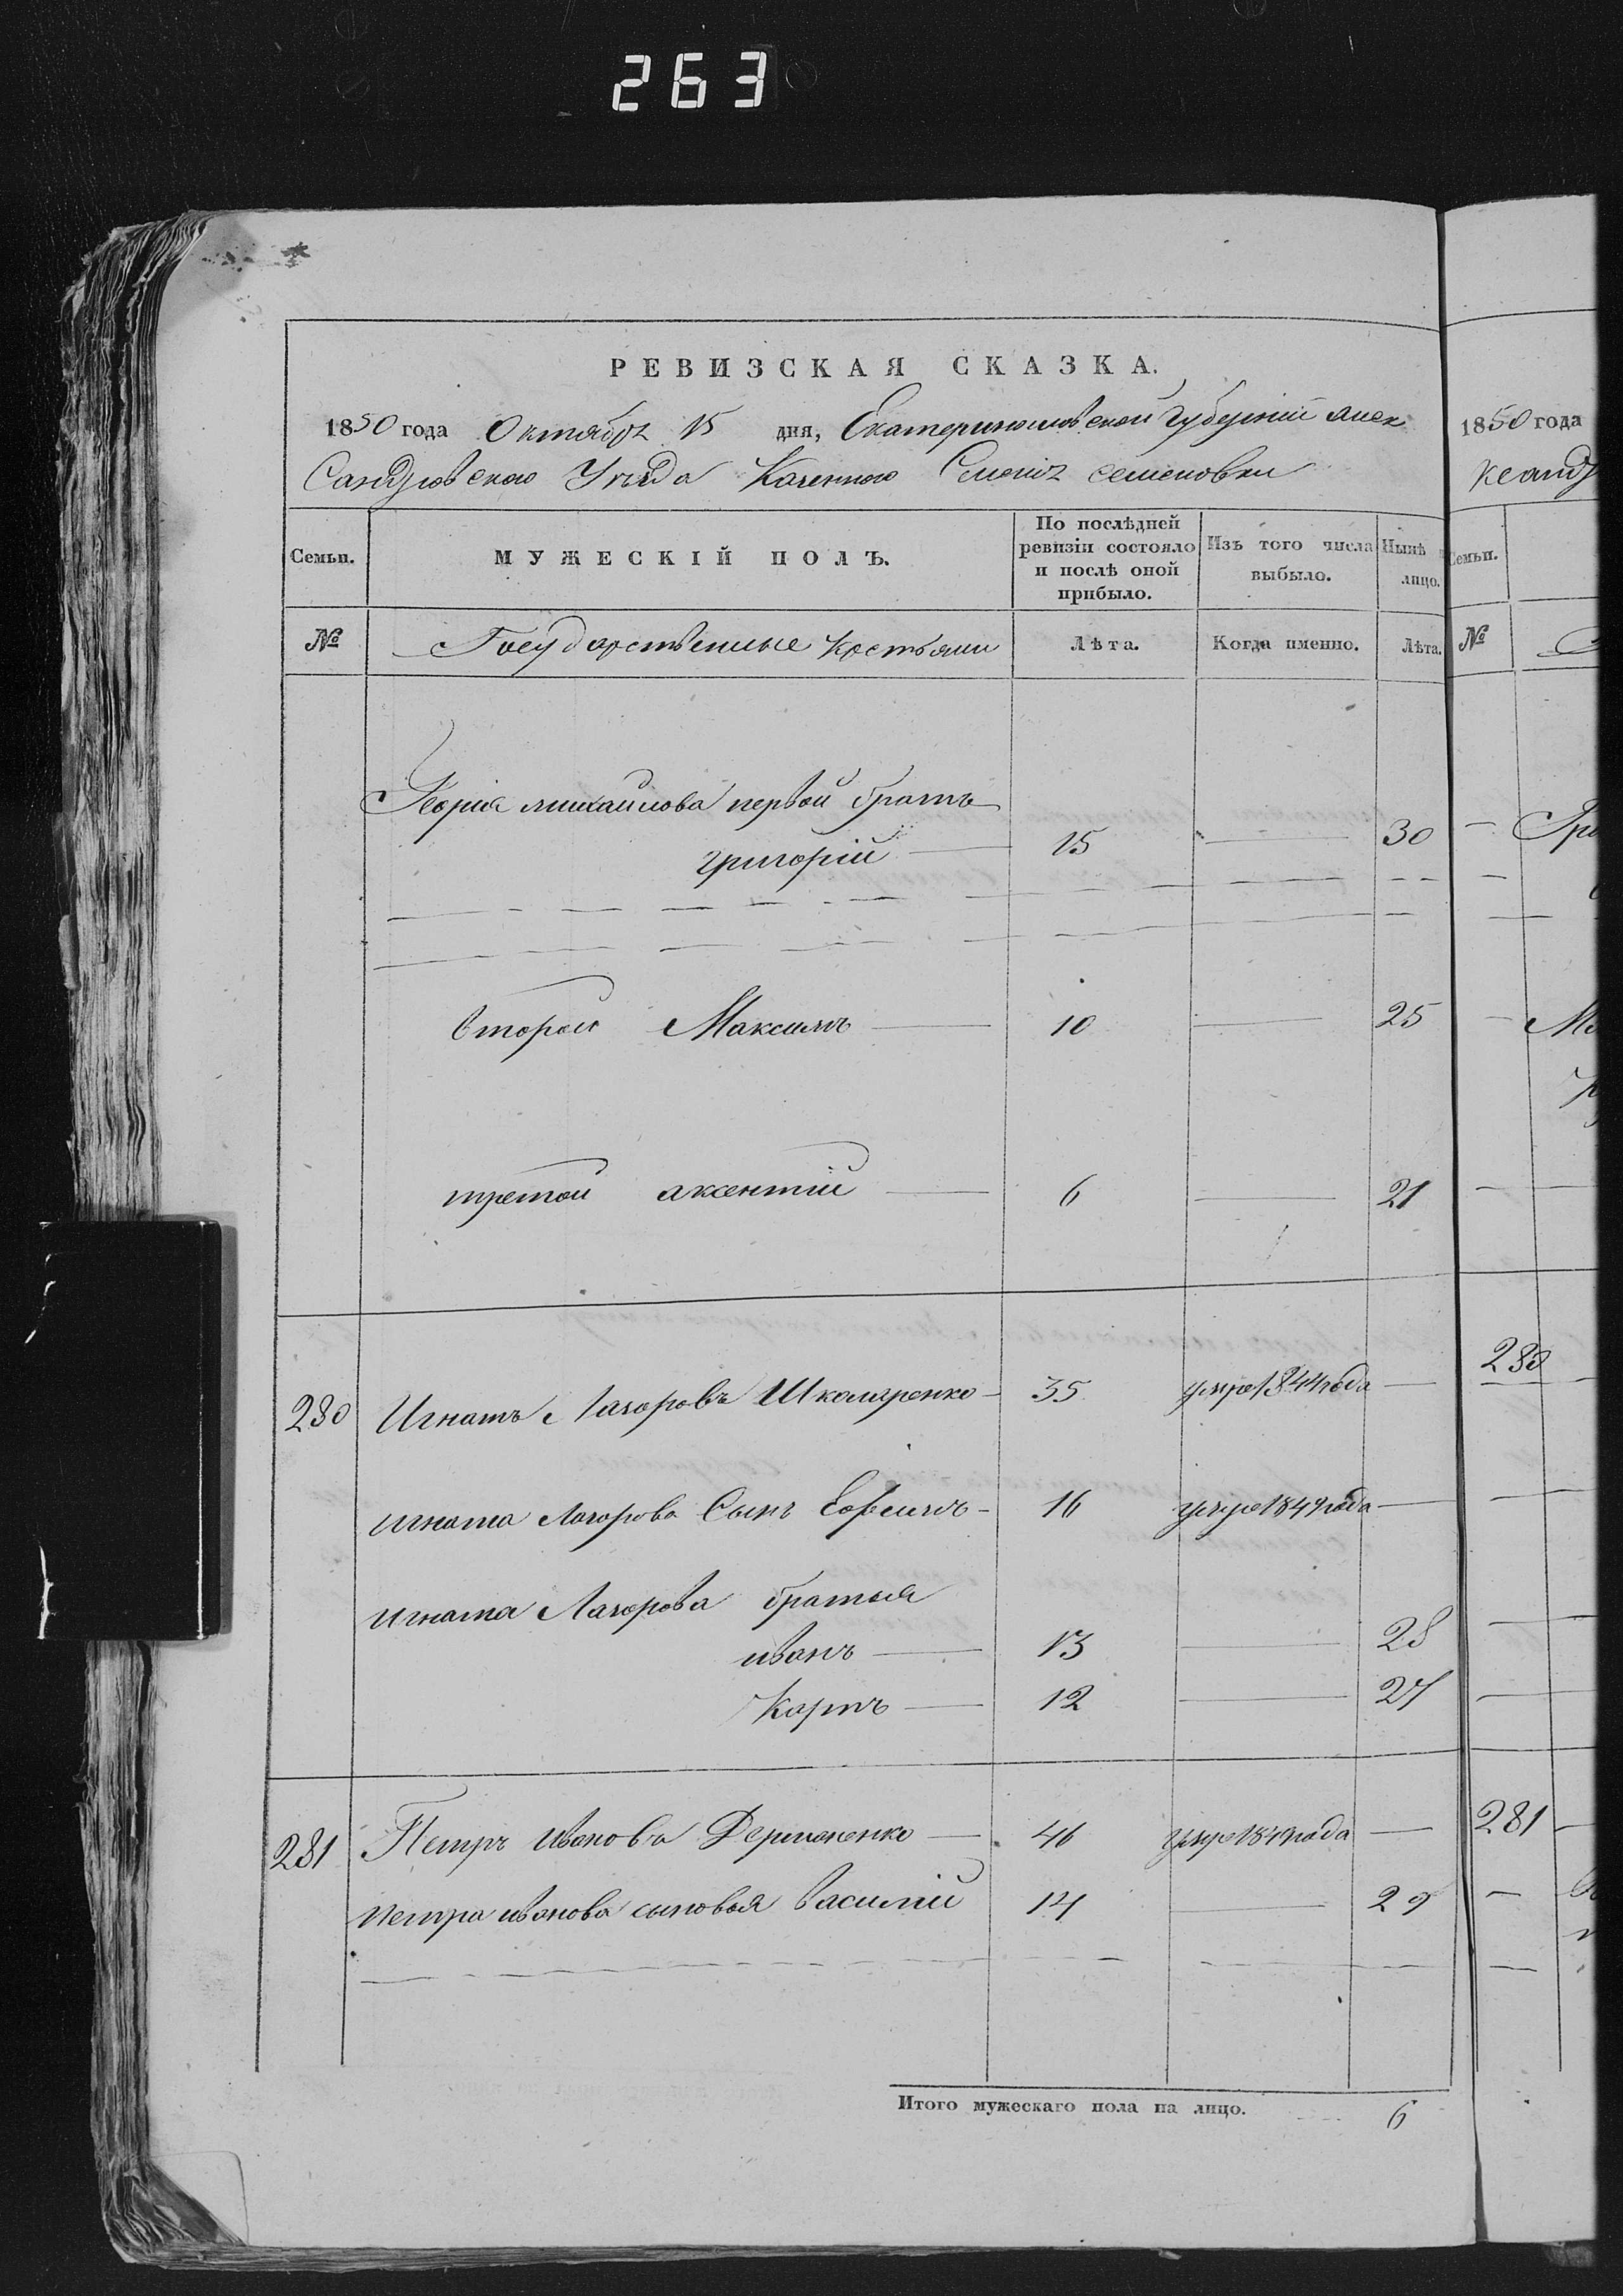 263
РЕВИЗСКАЯ СКАЗКА.
1850 года Октября 15 дня, Екатеринославской губерніи алек
Сандровского Уезда Казенного Селенія семеновки
Семьи. МУЖЕСКІЙ ПОЛЪ. По послѣдней ревизіи состояло и послѣ оной прибыло. Изъ того числа выбыло. Нынѣ лицо.
№ Государственные крестьяни Лѣта. Когда именно. Лѣта.
михаилова первой братъ
григорій — 15 — 30
второй Максимъ — 10 — 25
третой аксентій — 6 — 21
280 Игнатъ Лазоровъ Школяренко — 35 умре 1844 года —
игната Лазорова Сынъ Ефимъ — 16 умре 1849 года —
игната Лазорова братья
иванъ — 13 — 28
Карпъ — 12 — 27
281 Петръ Ивановъ — 46 умре 1849 года —
петра иванова сыновья василій 14 — 29
Итого мужескаго пола на лицо. 6
1850 года
ксанд
Семьи.
№
280
281